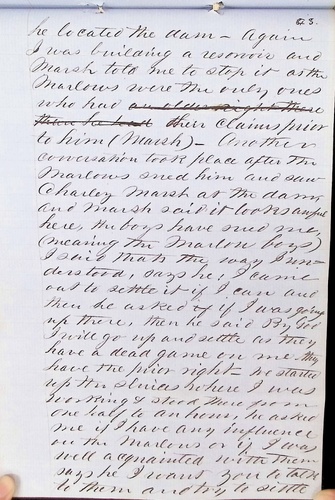 63.
he located the dam - Again
I was building a resorvoir and
Marsh told me to stop it as the
Marlows were the only ones
who had an older right there
than he had their claims prior
to him (Marsh) - Another
conversation took place after the
Marlows sued him and saw
Charley Marsh at the dam
and Marsh said it looks awful
here, the boys have sued me,
(meaning the Marlow boys)
I said thats the way I un-
derstood, says he, I came
out to settle it if I can and
then he asked if I was going
up there, then he said By God
I will go up and settle as they
have a dead game on me they
have the prior right - we started
up the sluices where I was
working & stood there from
one half to an hour, he asked
me if I have any influence
on the Marlows or if I was
well acquainted with them
says he I want you to talk
to them and try to settle